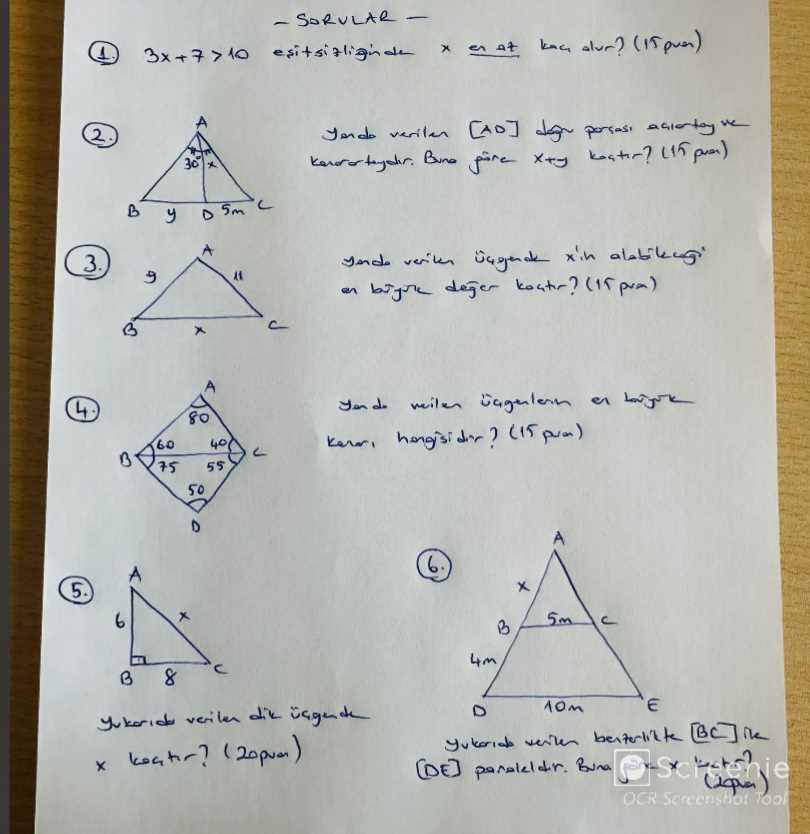 - SORULAR -
1. 3x+7>10 eşitsizliğinde x en az kaç olur? (15 puan)
2. Yanda verilen [AD] doğru parçası açıortay ve
kenarortaydır. Buna göre x+y kaçtır? (15 puan)
A
30° x
B y D 5m C
3. Yanda verilen üçgende x'in alabileceği
en büyük değer kaçtır? (15 puan)
A
9 11
B x C
4. Yanda verilen üçgenlerin en büyük
kenarı hangisidir? (15 puan)
A
80
B 60 40 C
75 55
50
D
5.
A
6 x
B 8 C
Yukarıda verilen dik üçgende
x kaçtır? (20 puan)
6.
A
x
B 5m C
4m
D 10m E
Yukarıda verilen benzerlikte [BC] ile
[DE] paraleldir. Buna göre x kaçtır?
(20 puan)
Screenie
OCR Screenshot Tool